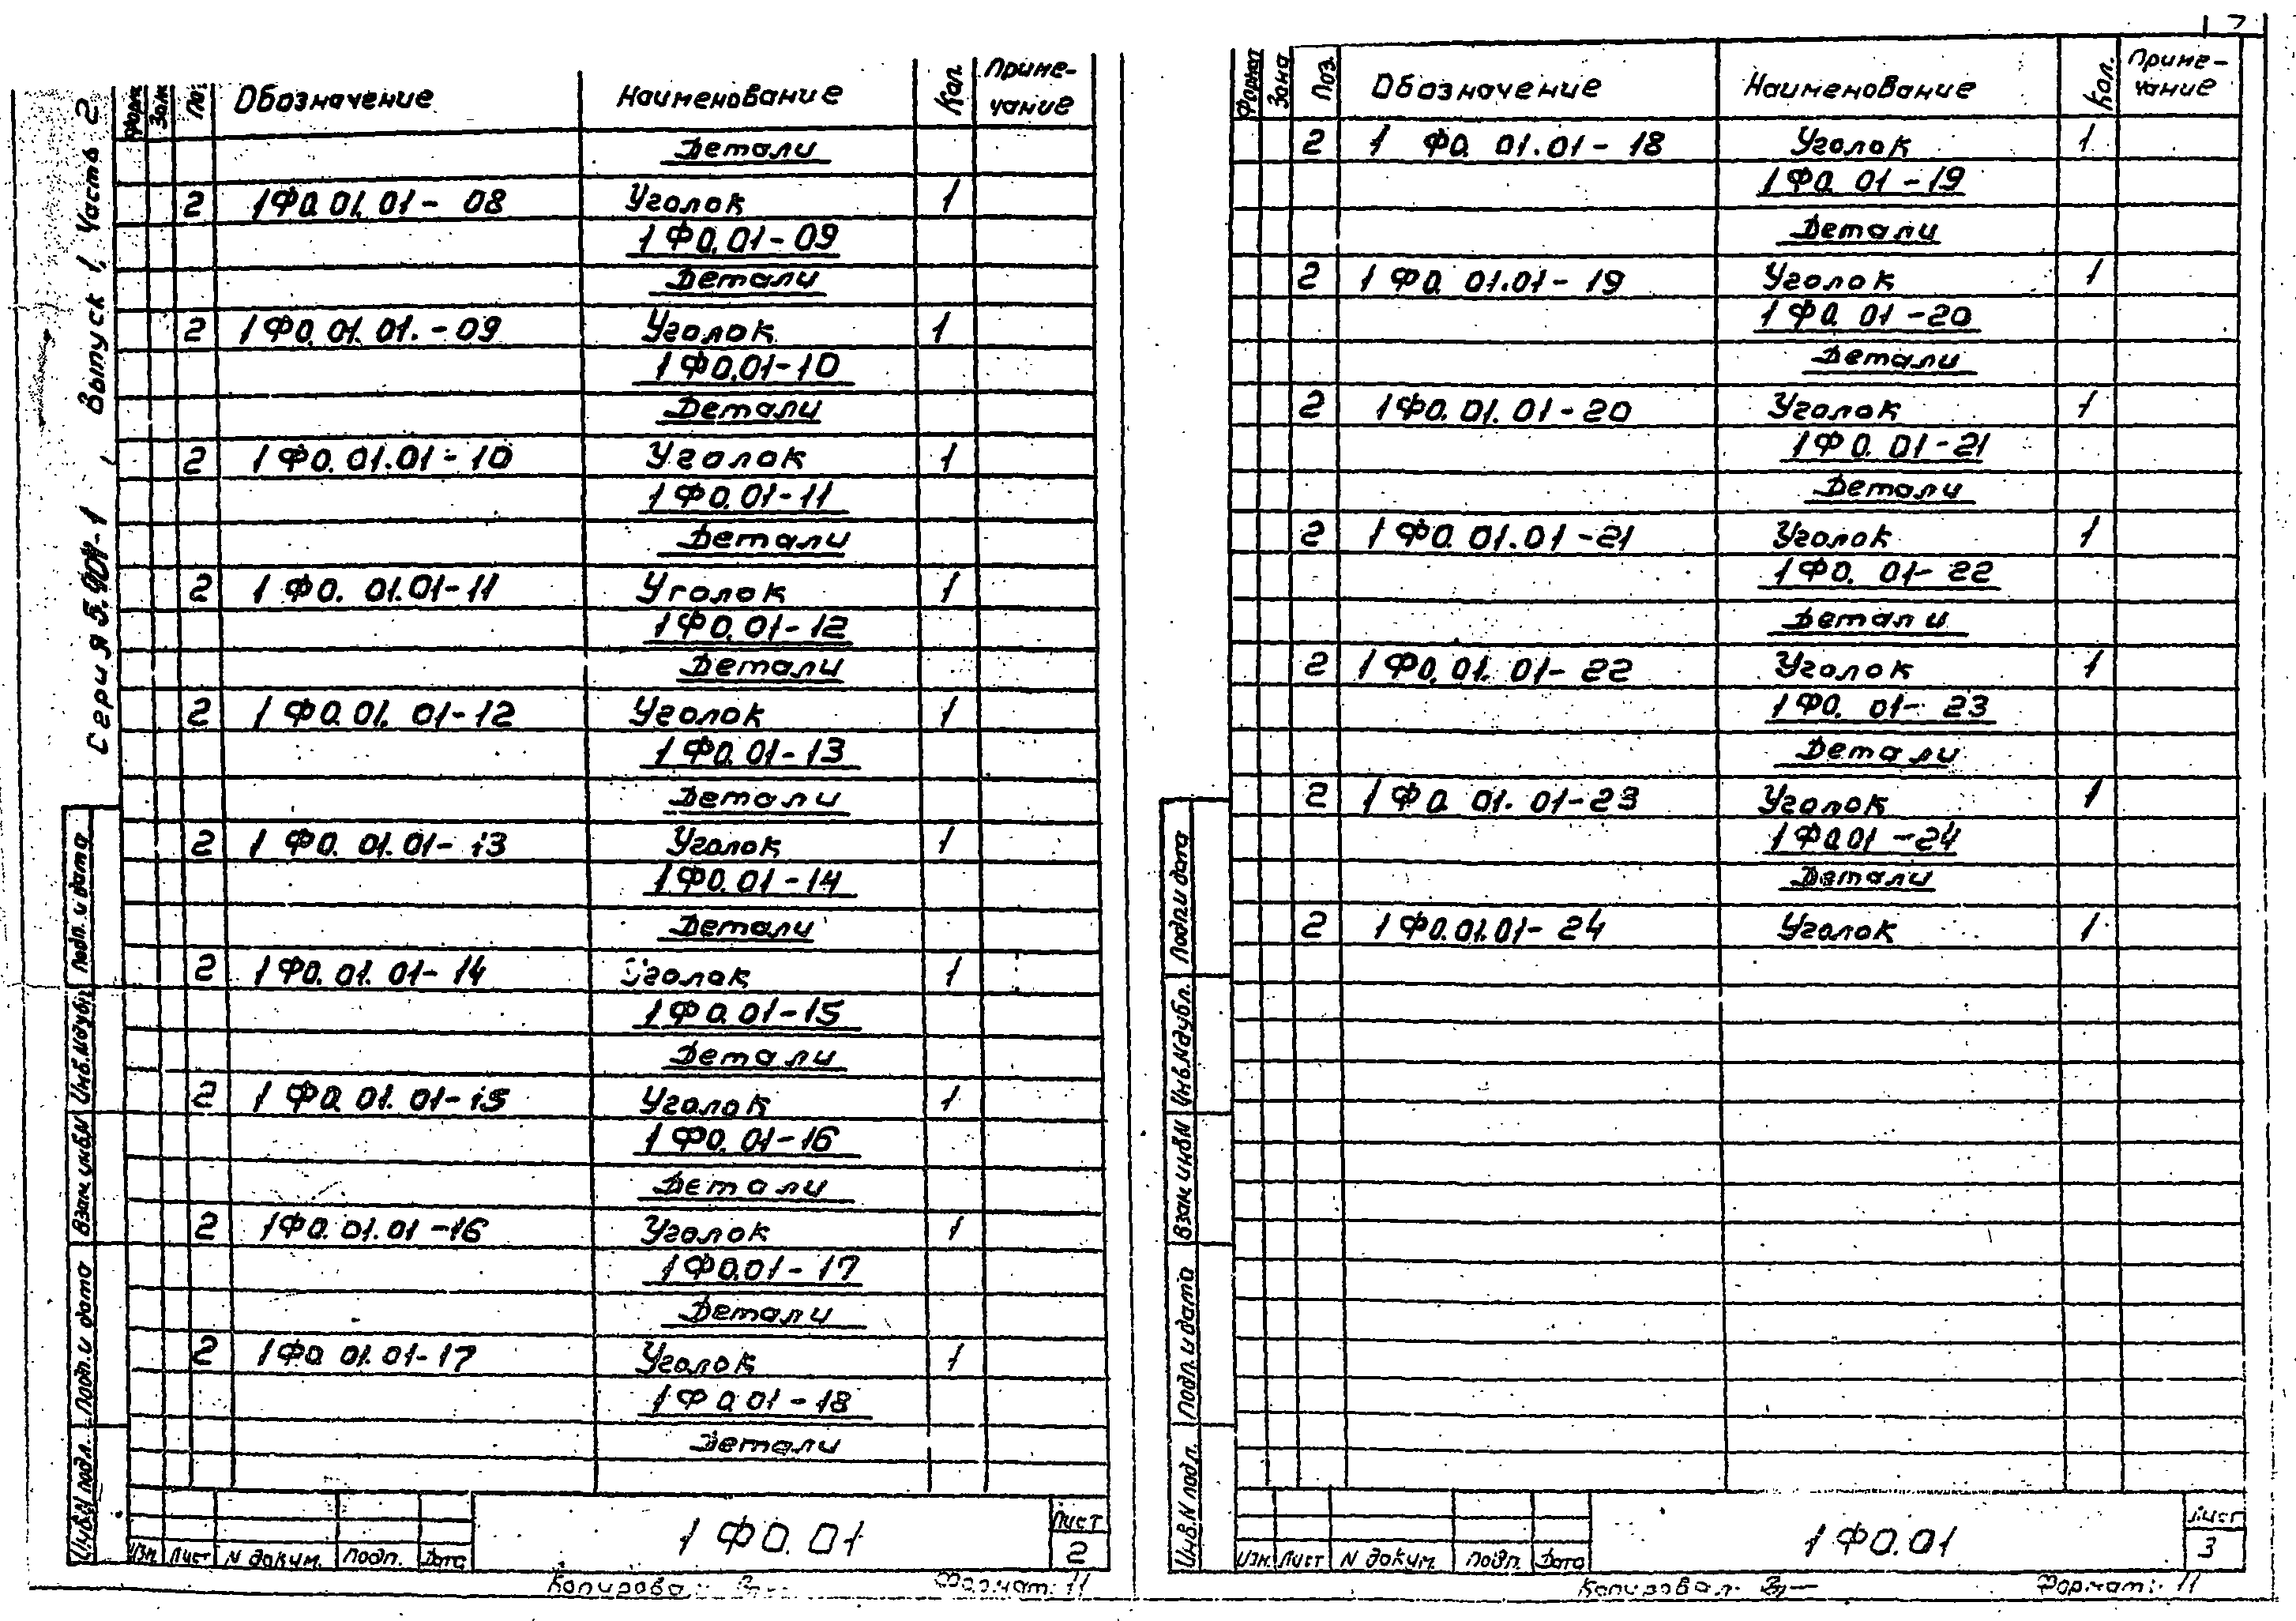 7
Серия 5.904-1, Выпуск 1, Часть 2
Форм. Зон. По. Обозначение Наименование Кол. Приме-
чание
Детали
2 1Ф0.01.01-08 Уголок 1
1Ф0.01-09
Детали
2 1Ф0.01.01.-09 Уголок 1
1Ф0.01-10
Детали
2 1Ф0.01.01-10 Уголок 1
1Ф0.01-11
Детали
2 1Ф0.01.01-11 Уголок 1
1Ф0.01-12
Детали
2 1Ф0.01.01-12 Уголок 1
1Ф0.01-13
Детали
2 1Ф0.01.01-13 Уголок 1
1Ф0.01-14
Детали
2 1Ф0.01.01-14 Уголок 1
1Ф0.01-15
Детали
2 1Ф0.01.01-15 Уголок 1
1Ф0.01-16
Детали
2 1Ф0.01.01-16 Уголок 1
1Ф0.01-17
Детали
2 1Ф0.01.01-17 Уголок 1
1Ф0.01-18
Детали
Подп. и дата
Инв.Nдубл
Взам.инв.N
Подп. и дата
Инв.N подл.
Изм. Лист N докум. Подп. Дата
1Ф0.01
Лист
2
Копировал: Формат: 11
Формат Зона Поз. Обозначение Наименование Кол. Приме-
чание
2 1Ф0.01.01-18 Уголок 1
1Ф0.01-19
Детали
2 1Ф0.01.01-19 Уголок 1
1Ф0.01-20
Детали
2 1Ф0.01.01-20 Уголок 1
1Ф0.01-21
Детали
2 1Ф0.01.01-21 Уголок 1
1Ф0.01-22
Детали
2 1Ф0.01.01-22 Уголок 1
1Ф0.01-23
Детали
2 1Ф0.01.01-23 Уголок 1
1Ф0.01-24
Детали
2 1Ф0.01.01-24 Уголок 1
Подп. и дата
Инв.Nдубл.
Взам.инвN
Подп. и дата
Инв.N подл.
Изм. Лист N докум. Подп. Дата
1Ф0.01
Лист
3
Копировал: Формат: 11